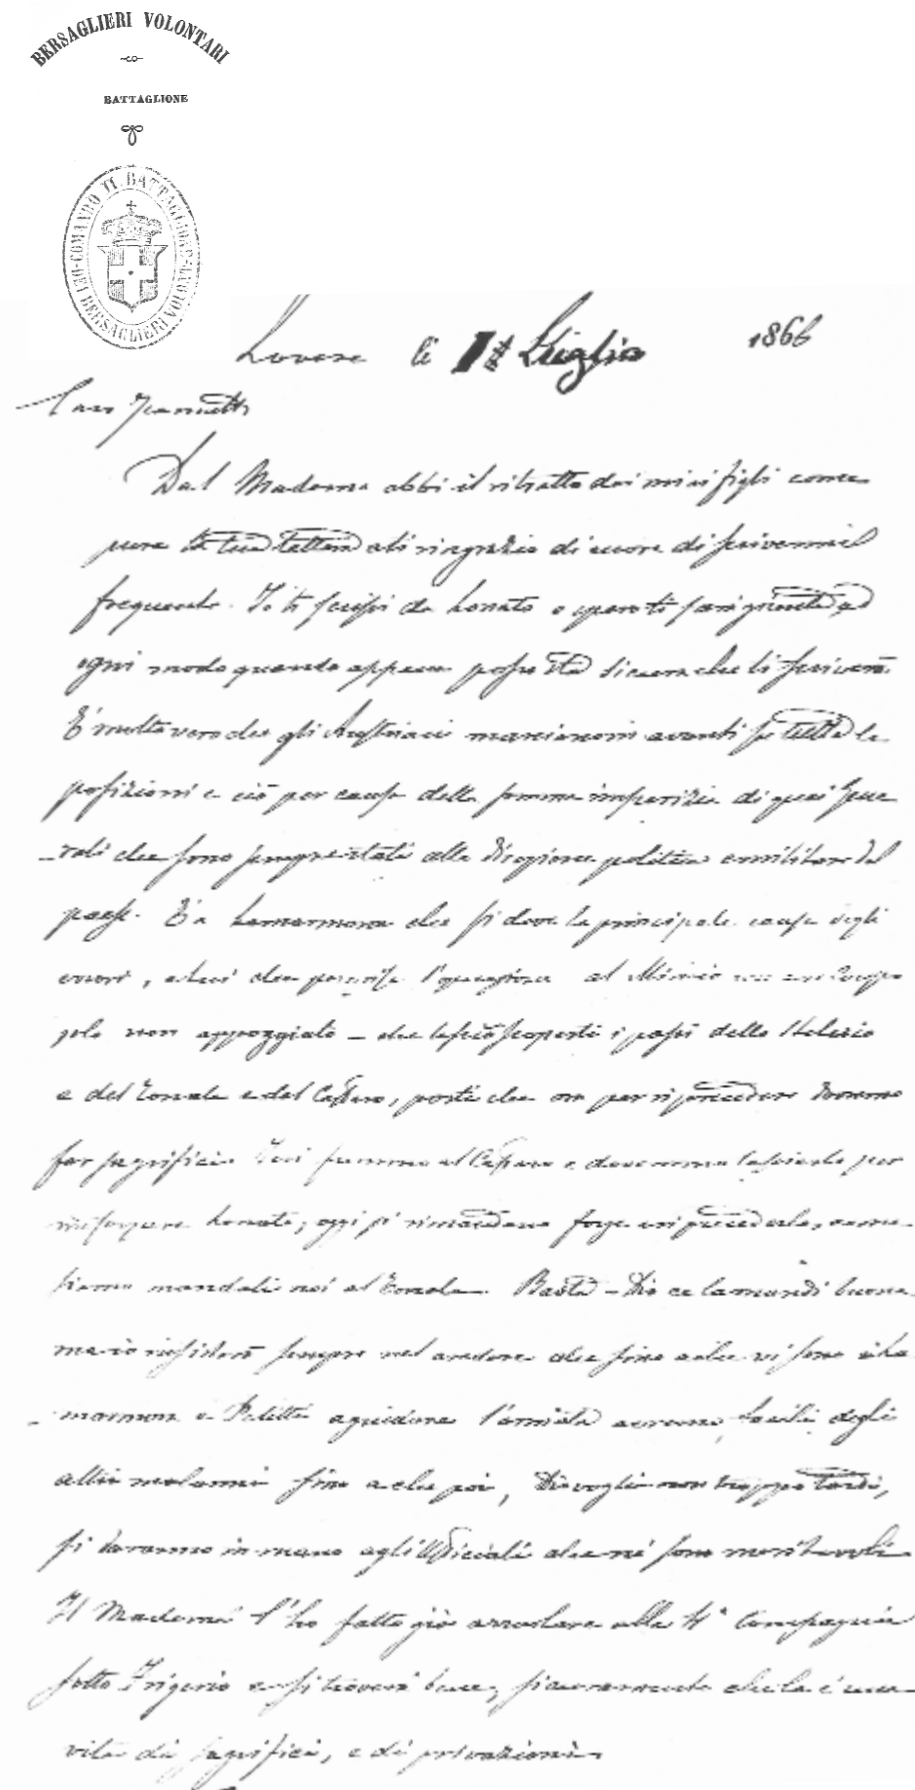 BERSAGLIERI VOLONTARI
BATTAGLIONE
COMANDO II. BATTAGLIONE DEI BERSAGLIERI VOLONTARI
Lovere li 1# Luglio 1866
Caro
Dal Maderna ebbi il ritratto dei miei figli come
pure la tua lettera e ti ringrazio di cuore di scrivermi
frequente. Io ti scrissi da Lonato e spero ti sarà giunta, ad
ogni modo quando appena posso sta sicura che ti scriverò.
È molto vero che gli Austriaci marciano avanti su tutte le
posizioni e ciò per causa della somma imperizia di quei Gene
-rali che sono sempre stati alla direzione politica e militare del
paese. È a Lamarmora che si deve la principale causa degli
errori, a lui che permise l'operazione al Mincio con un Corpo
solo non appoggiato - che lasciò scoperti i passi dello Stelvio
e del Tonale e del Caffaro, posti che ora per riprendere dovremo
far sagrificii. Ieri fummo al Caffaro e dovemmo lasciarlo per
rinforzare Lonato, oggi si rimandano forze a riprenderlo, come
siamo mandati noi al Tonale. Basta - Dio ce la mandi buona
ma io insisterò sempre nel credere che fino a che vi sono i La
-marmora e Petitti a guidare l'armata avremo degli
altri malanni fino a che poi, Dio voglia non troppo tardi,
si daranno in mano agli Ufficiali che ne sono meritevoli.
Il Maderna l'ho fatto già arruolare alla 4ª Compagnia
sotto Frigerio e si troverà bene, sicuramente che la è una
vita di sagrifici, e di privazioni